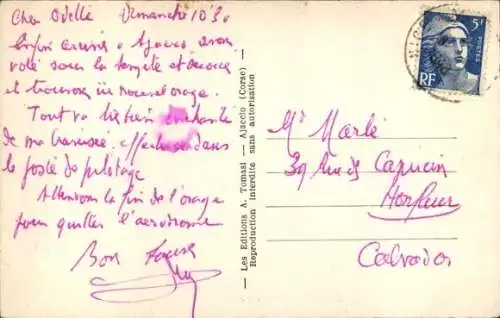 Cher Odette Dimanche 10h
Enfin arrivés à Ajaccio, avons
volé sous la tempête et
et trouvons un nouvel orage.
Tout va très bien enchanté
de ma traversée, effectuée dans
le poste de pilotage
Attendons la fin de l'orage
pour quitter l'aérodrome
Bons
— Les Editions A. Tomasi — Ajaccio (Corse) —
Reproduction interdite sans autorisation
5F
POSTES
RF
Mr Marlé
39 rue des Capucin
Honfleur
Calvados